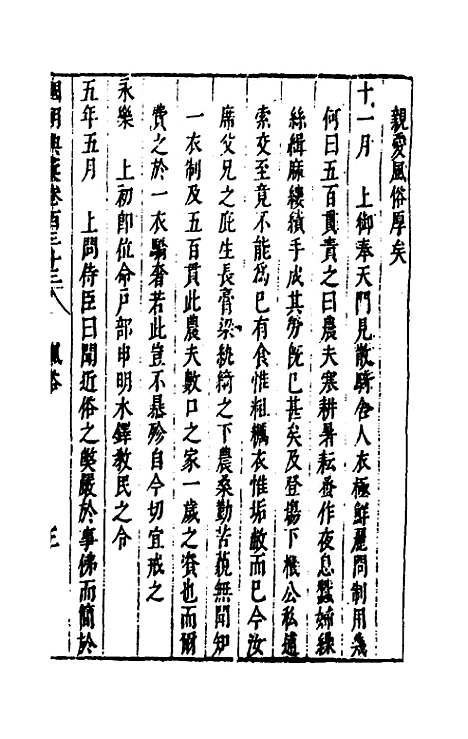 親愛風俗厚矣
十一月　上御奉天門見散騎舍人衣極鮮麗問制用幾
何曰五百貫責之曰農夫寒耕暑耘蚤作夜息蠶婦繰
絲緝麻縷績手成其勞旣已甚矣及登場下機公私逋
索交至竟不能爲已有食惟粗糲衣惟垢敝而已今汝
席父兄之庇生長膏梁紈綺之下農桑勤苦藐無聞知
一衣制及五百貫此農夫數口之家一歲之資也而爾
費之於一衣驕奢若此豈不暴殄自今切宜戒之
永樂　上初卽位命戸部申明木鐸教民之令
五年五月　上問侍臣曰聞近俗之獘嚴於事佛而簡於
國朝典彙卷百三十三　風俗　三